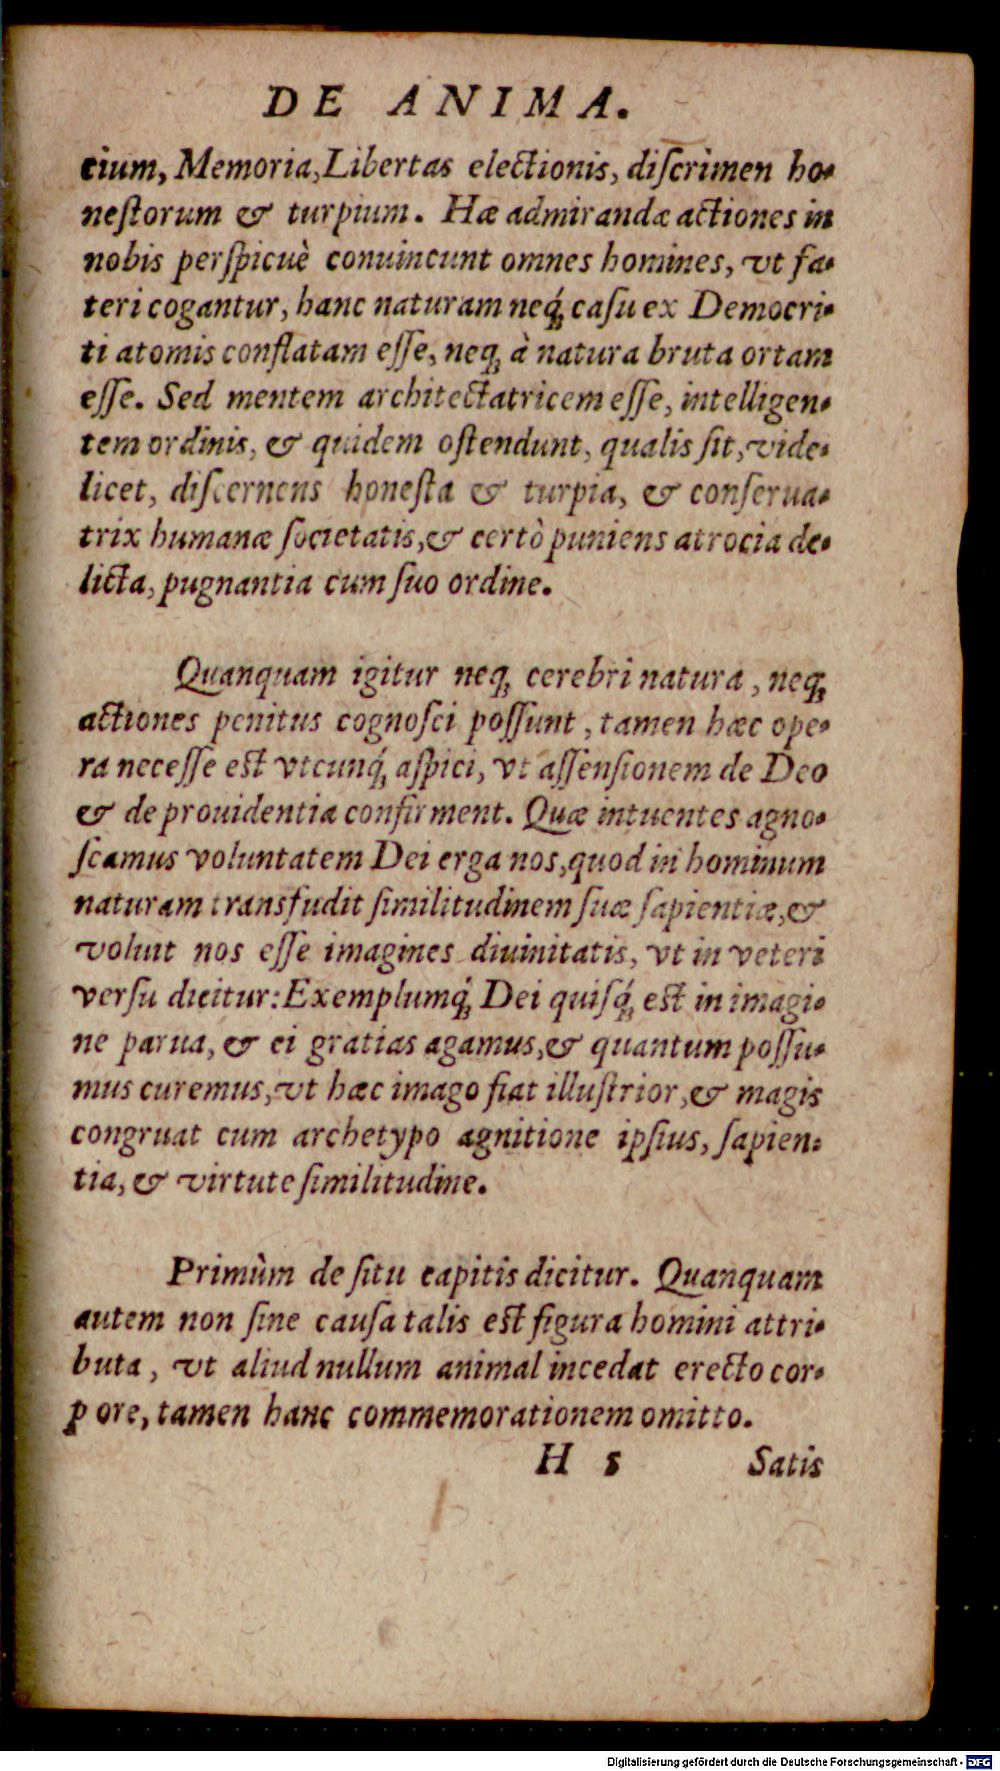 DE ANIMA.
cium, Memoria, Libertas electionis, diſcrimen ho-
neſtorum & turpium. Hæ admirandæ actiones in
nobis perſpicuè conuincunt omnes homines, vt fa-
teri cogantur, hanc naturam neq́; caſu ex Democri-
ti atomis conflatam eſſe, neq; à natura bruta ortam
eſſe. Sed mentem architectatricem eſſe, intelligen-
tem ordinis, & quidem oſtendunt, qualis ſit, vide-
licet, diſcernens honeſta & turpia, & conſerua-
trix humanæ ſocietatis, & certò puniens atrocia de-
licta, pugnantia cum ſuo ordine.
Quanquam igitur neq; cerebri natura, neq;
actiones penitus cognoſci poſſunt, tamen hæc ope-
ra neceſſe eſt vtcunq́; aſpici, vt aſſenſionem de Deo
& de prouidentia confirment. Quæ intuentes agno-
ſcamus voluntatem Dei erga nos, quod in hominum
naturam transfudit ſimilitudinem ſuæ ſapientiæ, &
voluit nos eſſe imagines diuinitatis, vt in veteri
verſu dicitur: Exemplumq́; Dei quiſq́; eſt in imagi-
ne parua, & ei gratias agamus, & quantum poſſu-
mus curemus, vt hæc imago fiat illuſtrior, & magis
congruat cum archetypo agnitione ipſius, ſapien-
tia, & virtute ſimilitudine.
Primùm de ſitu capitis dicitur. Quanquam
autem non ſine cauſa talis eſt figura homini attri-
buta, vt aliud nullum animal incedat erecto cor-
pore, tamen hanc commemorationem omitto.
H 5 Satis
Digitalisierung gefördert durch die Deutsche Forschungsgemeinschaft - DFG